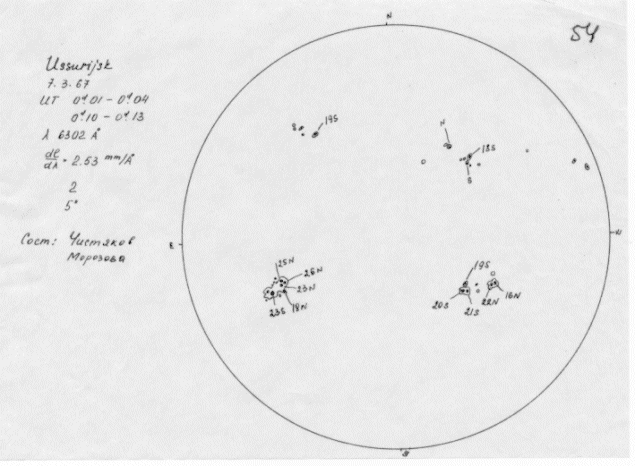 54
Ussurijsk
7.3.67
UT 0ʰ01 - 0ʰ04
0ʰ10 - 0ʰ13
λ 6302 Å
dl/dλ = 2.53 mm/Å
2
5"
Сост: Чистяков
Морозова
N
S 19S
N
18S
S
B
E
W
25N
26N
23N
23S 18N
19S
20S 21S 22N 16N